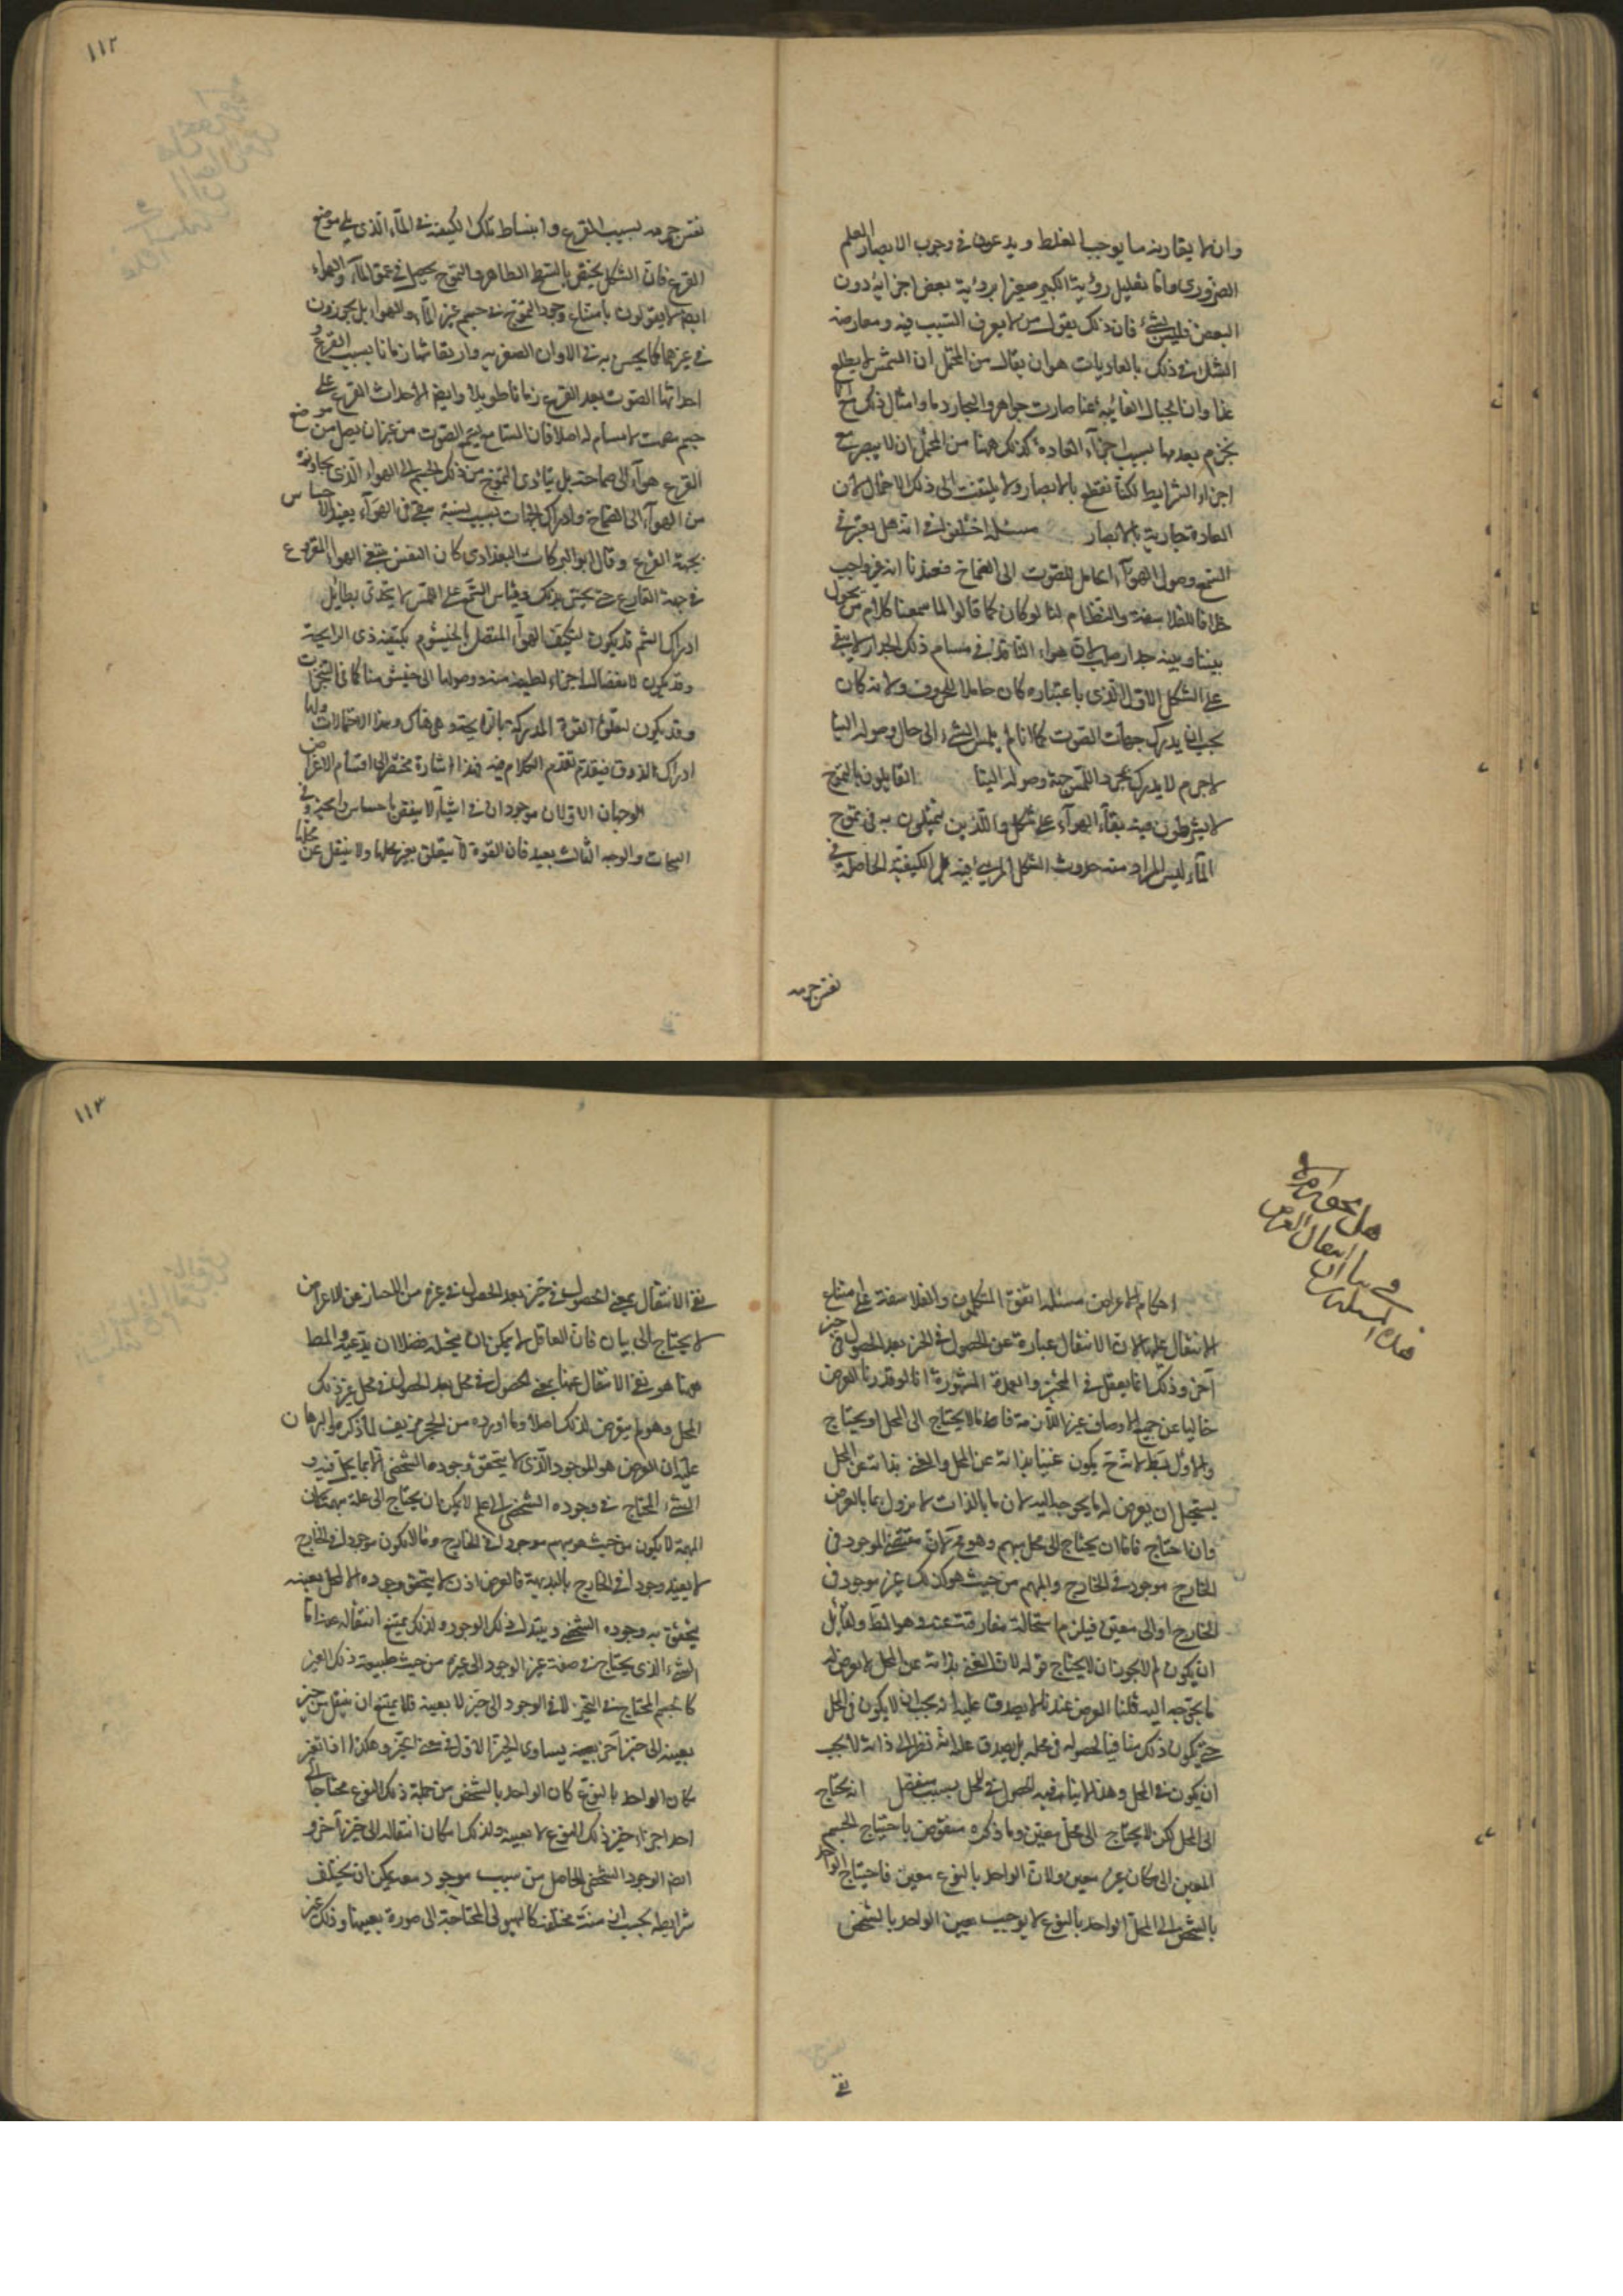 وان لا يقارنه ما يوجب الغلط ويدعون في وجوب الابصار العلم
الضروري واما تعليل رؤية الكبير صغيرا برؤية بعض اجزائه دون
البعض فليس بشئ فان ذلك يقول من لا يعرف السبب فيه ومعارضة
الشك في ذلك بالعاديات هو ان يقال من المحتمل ان الشمس لا يطلع
غدا وان الجبال الغائبة عنا صارت جواهر والبحار دما وامثال ذلك مع انا
نجزم بعدمها بسبب اجراء العادة كذلك ههنا من المحتمل ان لا يبصر مع
اجزاء الشرايط لكنا نقطع بالابصار ولا يلتفت الى ذلك الاحتمال لان
العادة جارية بالابصار مسئلة اختلفوا في انه هل يعتبر في
السمع وصول الهوآء الحامل للصوت الى الصماخ فعندنا انه غير واجب
خلافا للفلاسفة والنظام لنا لو كان كما قالوا لما سمعنا كلام من يحول
بيننا وبينه جدار صلب لان هواء النافذ في مسام ذلك الجدار لا يبقى
على الشكل الاول الذي باعتباره كان حاملا للحروف ولانه كان
يجب ان لا يدرك جهات الصوت كما انا لم يلمس الشئ الى حال وصوله الينا
لا جرم لا يدرك بمجرد اللمس جهة وصوله الينا القايلون بالتموج
لا يشترطون فيه بقآء الهوآء على شكل والذين يتمثلون به في تموج
المآء ليس المراد منه حدوث الشكل المرئي فيه بل الكيفية الحاصلة في
نفس جرمه
١١٢
نفس جرمه بسبب القرع وانبساط تلك الكيفية في المآء الذي يلي موضع
القرع فان الشكل يختص بالسطح الظاهر والتموج يحصل في عمق المآء والهواء
ايضا لا يقولون بامتناع وجود التموج في جسم غير المآء والهوا بل يجوزون
في غيرهما كما يحس به في الاواني الصفرية وارتعاشها زمانا بسبب القرع و
احداثها الصوت بعد القرع زمانا طويلا وايضا لاحداث القرع على
جسم مصمت لا مسام له اصلا فان السامع يسمع الصوت من غير ان يصل من موضع
القرع هوآء الى صماخه بل يتادى التموج من ذلك الجسم الى الهواء الذي يجاوره
من الهوآء الى الصماخ وادراك الجهات بسبب بسببه يبقى في الهوآء يفيد الاحساس
بجهة القرع وقال ابو البركات البغدادي كان النفس يتبع الهوا المقروع
في جهة القارع حتى يحس بذلك وقياس السمع على اللمس لا يجدي بطايل
ادراك الشم قد يكون لتكيف الهوآء المتصل بالخيشوم بكيفية ذي الرايحة
وقد يكون لانفصال اجزاء لطيفة منه ووصولها الى خيشومنا كما في التبخرات
وقد يكون لتعلق القوة المدركة بالرايحة وهي هناك وهذا الاحتمالات واما
ادراك الذوق فيقدم تقدم الكلام فيه فهذا اشارة مختصرة الى اقسام الاعراض
الوجهان الاولان موجودان في اشيآء لا يفقن احساس وايحة وفي
البحات والوجه الثالث بعيد فان القوة لا يتعلق بغير محلها ولا ينتقل عن محلها
هل يجوز ام لا
في بيان انتقال العرض
هذه المسئلة
احكام الاعراض مسئلة اتفق المتكلمون والفلاسفة على امتناع
الانتقال عليها لان الانتقال عبارة عن الحصول في الحيز بعد الحصول في حيز
آخر وذلك انما يعقل في المتحيز والعمدة المشهورة انا لو قدرنا العرض
خاليا عن جميع الاوصاف غير اللازمة فاما ان لا يحتاج الى المحل او يحتاج
والاول بط لانه ح يكون غنيا بذاته عن المحل والغني بذاته عن المحل
يستحيل ان يعرض له ما يحوجه اليه لان ما بالذات لا يزول بما بالعرض
وان احتاج فاما ان يحتاج الى محل مبهم وهو مح لان مقتضي الموجود في
الخارج موجود في الخارج والمبهم من حيث هو كذلك غير موجود في
الخارج او الى معين فيلزم استحالة مفارقته عنه وهو المط ولقايل
ان يكون لم لا يجوز ان لا يحتاج قوله لان الغني بذاته عن المحل لا يعرض له
ما يحوجه اليه قلنا العرض عندنا لا يصدق عليه انه يجب ان لا يكون في المحل
حتى يكون ذلك منافيا لحصوله في محله بل يصدق عليه انه نظرا الى ذاته لا يجب
ان يكون في المحل وهذا لا ينافيه الحصول في المحل بسبب منفصل انه يحتاج
الى المحل لكن لا يحتاج الى محل معين وما ذكره منقوض باحتياج الجسم
المعين الى مكان غير معين ولان الواحد بالنوع معين فاحتياج الواحد
بالشخص الى المحل الواحد بالنوع لا يوجب تعين الواحد بالشخص
نفى
١١٣
نفى الانتقال بمعنى الحصول في حيز بعد الحصول في غيره من الاحياز عن الاعراض
لا يحتاج الى بيان فان العاقل لا يمكن ان يتخيله فضلا ان يدعيه والمط
ههنا هو نفي الانتقال عنها بمعنى الحصول في محل بعد الحصول في محل غير ذلك
المحل وهو لم يتعرض لذلك اصلا وما اورده من الحجج مزيف لما ذكره والبرهان
عليه ان العرض هو الموجود الذي لا يتحقق وجوده الشخصي الا بما يحل فيه و
الشئ المحتاج في وجوده الشخصي الى علة لا يمكن ان يحتاج الى علة مبهمة لان
المبهم لا يكون من حيث هو مبهم موجودا في الخارج وما لا يكون موجودا في الخارج
لا يفيد وجودا في الخارج بالبديهة فالعرض اذن لا يتحقق وجوده الا لمحل بعينه
يتحقق به وجوده الشخصي ويتبدل ذلك الوجود ولذلك يمتنع انتقاله عنه اما
الشئ الذي يحتاج في صفة غير الوجود الى غيره من حيث طبيعة ذلك الغير
كالجسم المحتاج في التحيز لا في الوجود الى حيز لا بعينه فلا يمتنع ان ينتقل من حيز
بعينه الى حيز آخر بعينه يساوي الحيز الاول في معنى التحيز وهكذا اذا تعين
مكان الواحد بالنوع كان الواحد بالشخص من جملة ذلك النوع محتاجا الى
احد اجزاء حيز ذلك النوع لا بعينه ولذلك امكان انتقاله الى حيز آخر و
ايضا الوجود الشخصي الحاصل من سبب موجود معه يمكن ان يختلف
شرايطه بحسب ازمنة مختلفة كالهيولى المحتاجة الى صورة بعينها وذلك غير